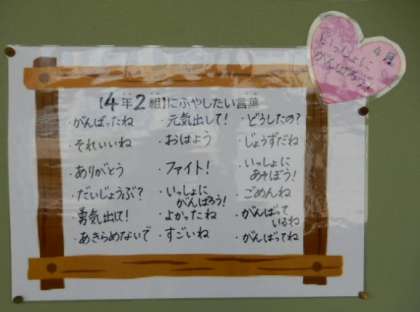 【4年2組】にふやしたい言葉
・がんばったね
・それいいね
・ありがとう
・だいじょうぶ?
・勇気出して!
・あきらめないで
・元気出して!
・おはよう
・ファイト!
・いっしょに
がんばろう!
・よかったね
・すごいね
・どうしたの?
・じょうずだね
・いっしょに
あそぼう!
・ごめんね
・がんばって
いるね
・がんばってね
いっしょに
がんばろう